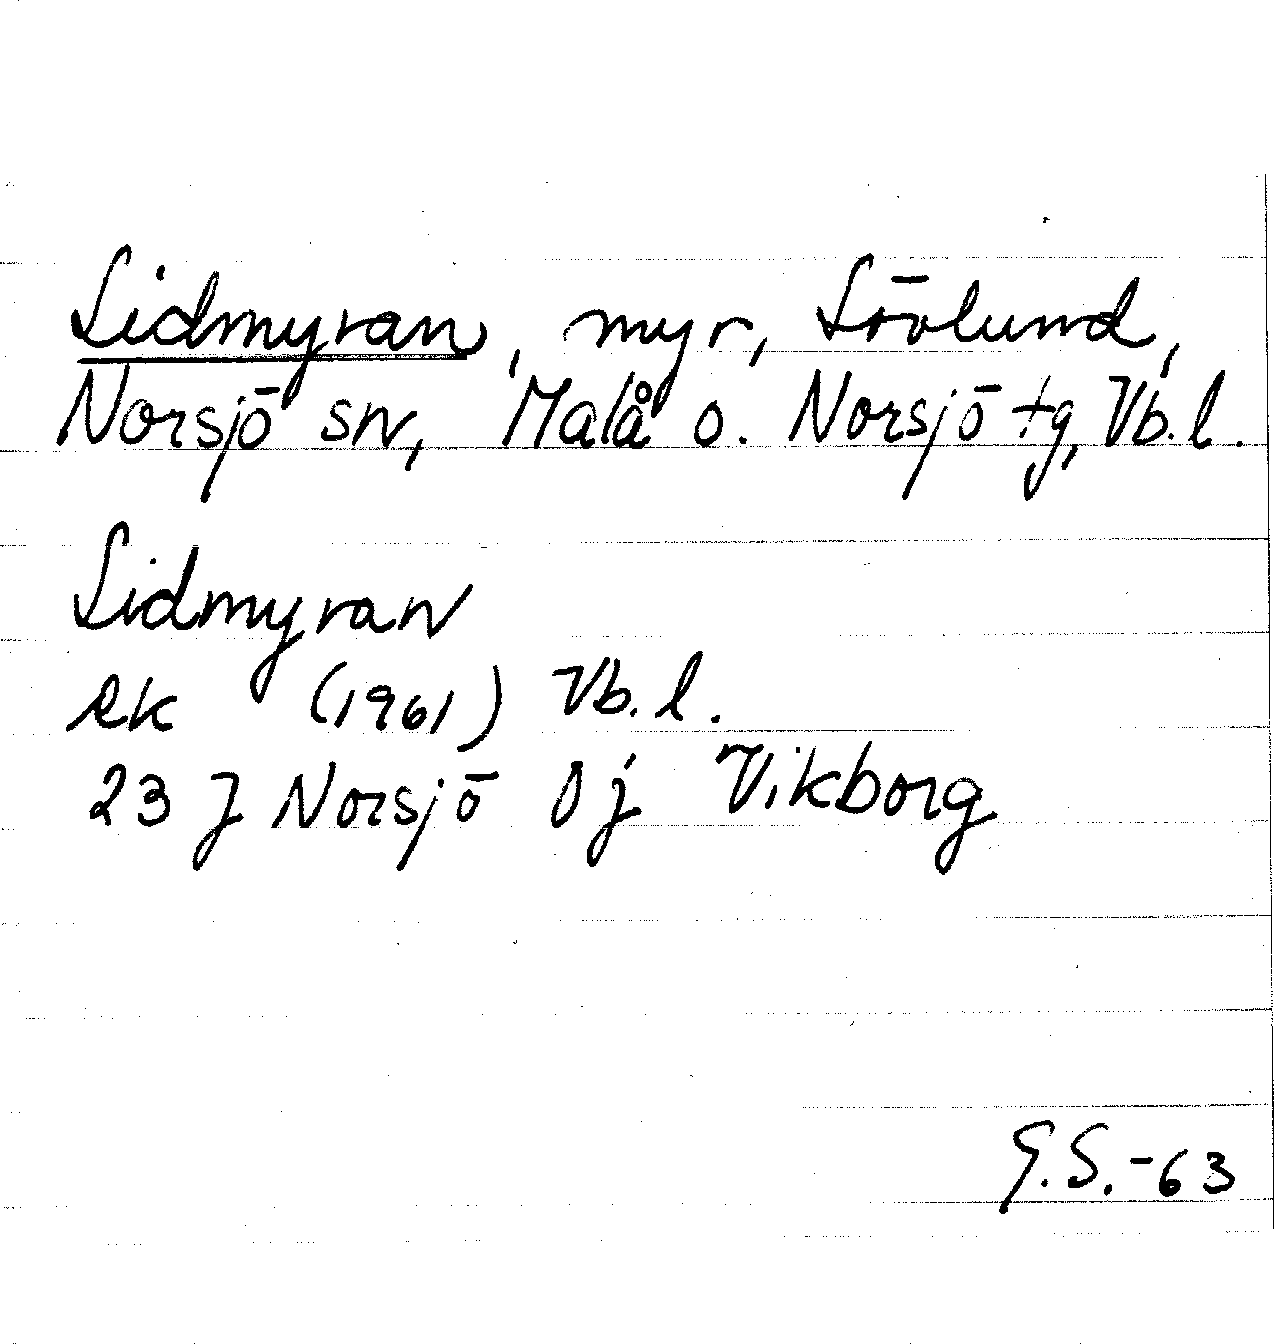 Lidmyran, myr, Lövlund,
Norsjö sn, Malå o. Norsjö tg, Vb.l.
Lidmyran
ek (1961) Vb.l.
23 J Norsjö 0j Vikborg
G.S.-63